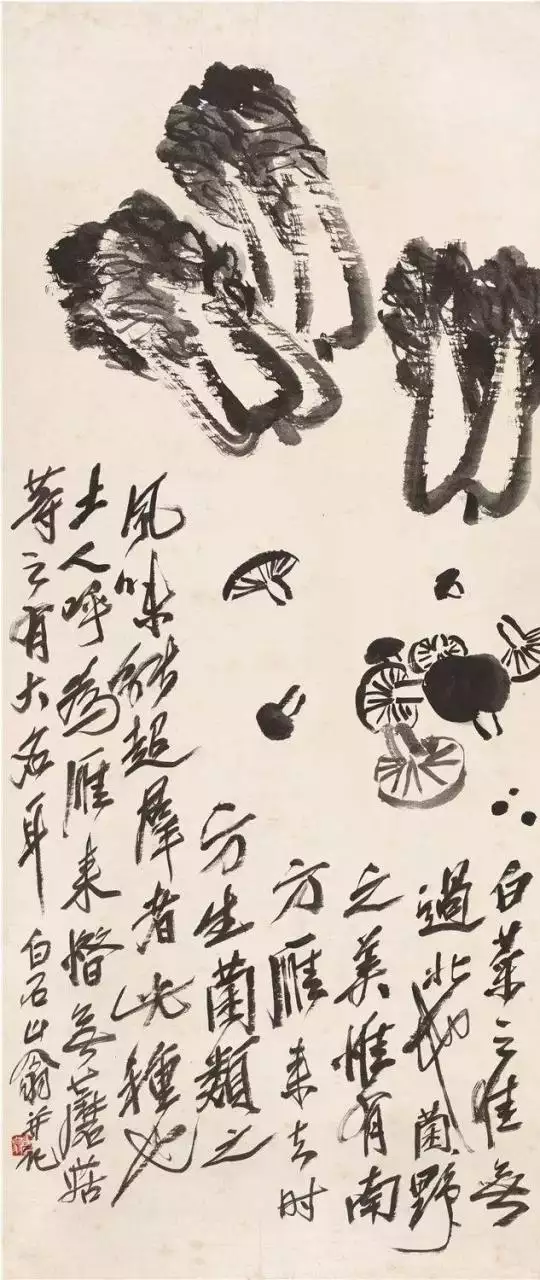 白菜之佳無
過北地菌野
之美惟有南
方雁来去时
方生菌類之
風味能超羣者此種也
土人呼為雁来惜無蘑菇
等之有大名耳
白石山翁并記